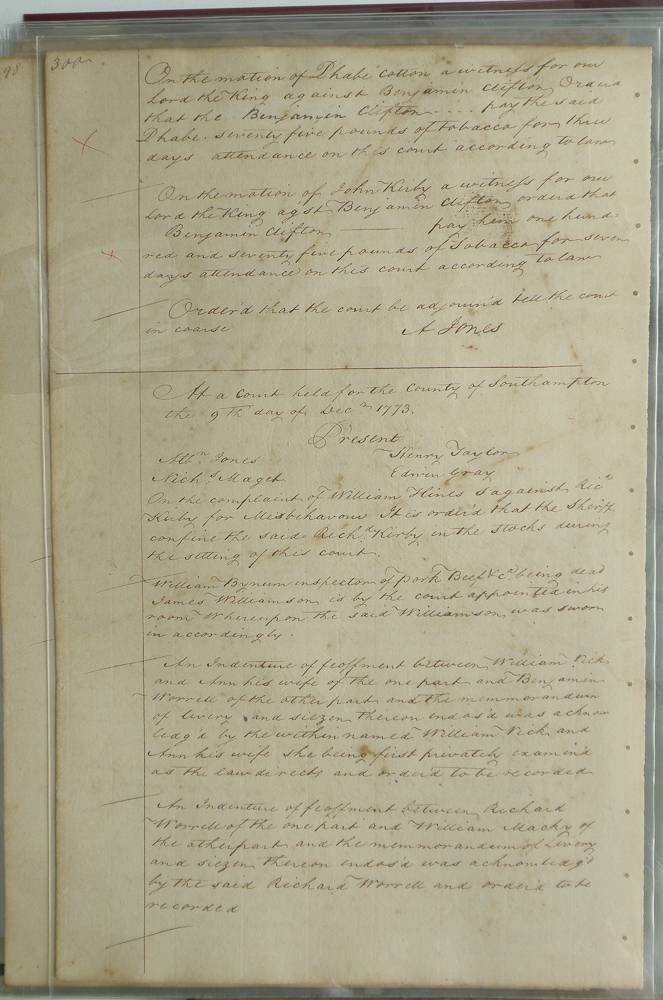 98
300
On the motion of Phabe Cotton a witness for our
Lord the King against Benjamin Clifton Orderd
that the Benjamin Clifton .... pay the said
Phabe seventy five pounds of tobacco for three
days attendance on this court according to law
On the motion of John Kirby a witness for our
Lord the King agst Benjamin Clifton orderd that
Benjamin Clifton pay him one hund
red and seventy five pounds of Tobacco for seven
days attendance on this court according to law
Order'd that the court be adjourn'd till the court
in coarse A Jones
At a Court held for the County of Southampton
the 9th day of Decr 1773.
Present
Albn Jones Henry Taylor
Nichs Maget Edwin Gray
On the complaint of William Hines against Ricd
Kirby for Misbehavour It is order'd that the Sheriff
confine the said Richd Kirby in the stocks during
the sitting of this court.
William Bynum inspector of Pork Beef &c being dead
James Williamson is by the court appointed in his
room Whereupon the said Williamson was sworn
in accordingly.
An Indenture of feoffment between William Vick
and Ann his wife of the one part and Benjamin
Worrell of the other part and the memmorandum
of livery and siezen thereon endos'd was acknow
ledg'd by the within named William Vick and
Ann his wife she being first privately examin'd
as the law directs and order'd to be recorded
An Indenture of feoffment between Richard
Worrell of the one part and William Macky of
the other part and the memmorandum of Livery
and siezen thereon endos'd was acknowledg'd
by the said Richard Worrell and order'd to be
recorded